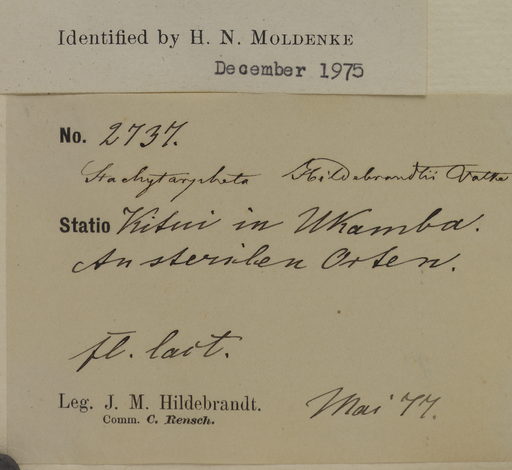 Identified by H. N. MOLDENKE
December 1975
No. 2737.
Stachytarpheta Hildebrandtii Vatke
Statio Kitui in Ukamba.
An sterilen Orten.
fl. lact.
Leg. J. M. Hildebrandt.
Comm. C. Rensch.
Mai 77.